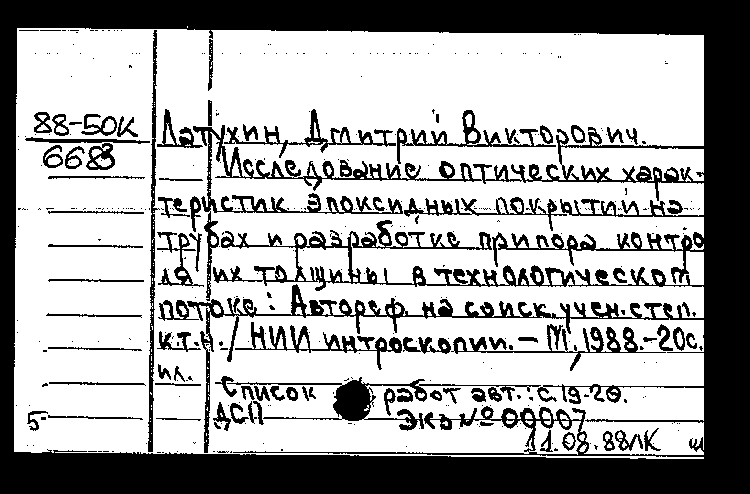 88-50К
6683
Латухин, Дмитрий Викторович.
Исследование оптических харак-
теристик эпоксидных покрытий на
трубах и разработке припора контро
ля их толщины в технологическом
потоке : Автореф. на соиск. учен. степ.
к.т.н. / НИИ интроскопии. – М., 1988.-20с.
ил.
Список работ авт.: с.19-20.
ДСП Экз № 00007
5-
11.08.88ЛК